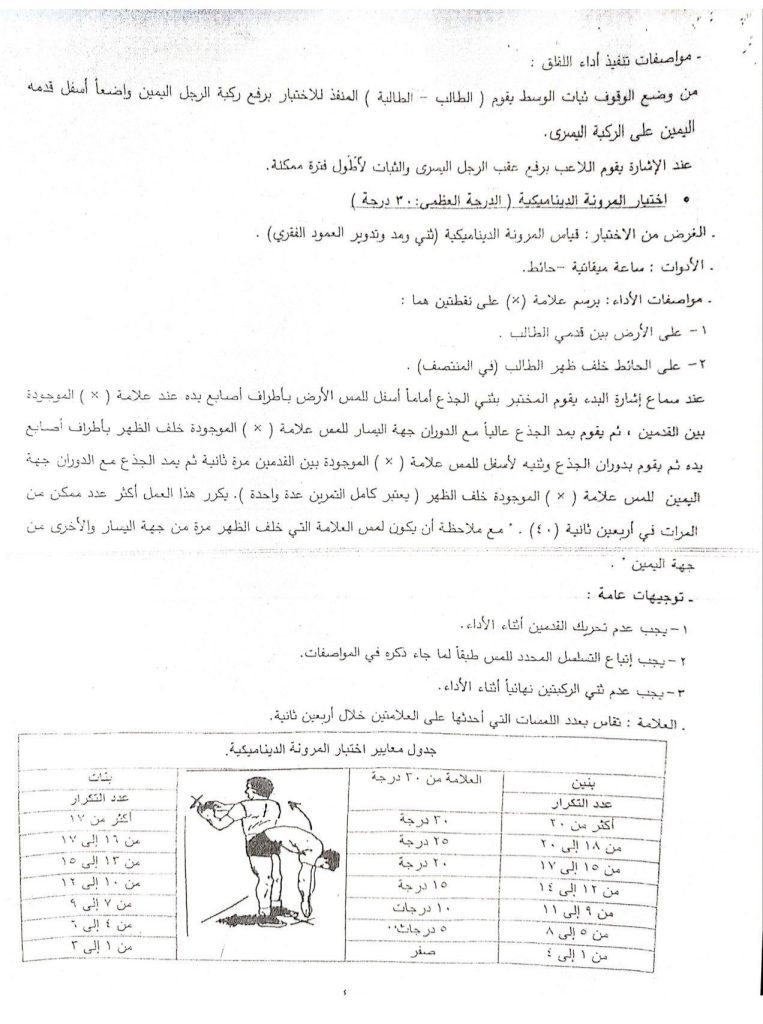 - مواصفات تنفيذ أداء اللقلق :
من وضع الوقوف ثبات الوسط يقوم ( الطالب - الطالبة ) المنفذ للاختبار برفع ركبة الرجل اليمين واضعاً أسفل قدمه
اليمين على الركبة اليسرى.
عند الإشارة يقوم اللاعب برفع عقب الرجل اليسرى والثبات لأطول فترة ممكنة.
• اختبار المرونة الديناميكية ( الدرجة العظمى: ٣٠ درجة )
. الغرض من الاختبار : قياس المرونة الديناميكية (ثني ومد وتدوير العمود الفقري) .
. الأدوات : ساعة ميقاتية - حائط.
. مواصفات الأداء : برسم علامة (×) على نقطتين هما :
١- على الأرض بين قدمي الطالب .
٢- على الحائط خلف ظهر الطالب (في المنتصف) .
عند سماع إشارة البدء يقوم المختبر بثني الجذع أماماً أسفل للمس الأرض بأطراف أصابع يده عند علامة ( × ) الموجودة
بين القدمين ، ثم يقوم بمد الجذع عالياً مع الدوران جهة اليسار للمس علامة ( × ) الموجودة خلف الظهر بأطراف أصابع
يده ثم يقوم بدوران الجذع وثنيه لأسفل للمس علامة ( × ) الموجودة بين القدمين مرة ثانية ثم يمد الجذع مع الدوران جهة
اليمين للمس علامة ( × ) الموجودة خلف الظهر ( يعتبر كامل التمرين عدة واحدة ). يكرر هذا العمل أكثر عدد ممكن من
المرات في أربعين ثانية (٤٠) . " مع ملاحظة أن يكون لمس العلامة التي خلف الظهر مرة من جهة اليسار والأخرى من
جهة اليمين " .
- توجيهات عامة :
١- يجب عدم تحريك القدمين أثناء الأداء.
٢- يجب إتباع التسلسل المحدد للمس طبقاً لما جاء ذكره في المواصفات.
٣- يجب عدم ثني الركبتين نهائياً أثناء الأداء.
. العلامة : تقاس بعدد اللمسات التي أحدثها على العلامتين خلال أربعين ثانية.
جدول معايير اختبار المرونة الديناميكية.
بنين العلامة من ٣٠ درجة بنات
عدد التكرار عدد التكرار
أكثر من ٢٠ ٣٠ درجة أكثر من ١٧
من ١٨ إلى ٢٠ ٢٥ درجة من ١٦ إلى ١٧
من ١٥ إلى ١٧ ٢٠ درجة من ١٣ إلى ١٥
من ١٢ إلى ١٤ ١٥ درجة من ١٠ إلى ١٢
من ٩ إلى ١١ ١٠ درجات من ٧ إلى ٩
من ٥ إلى ٨ ٥ درجات من ٤ إلى ٦
من ١ إلى ٤ صفر من ١ إلى ٣
٤